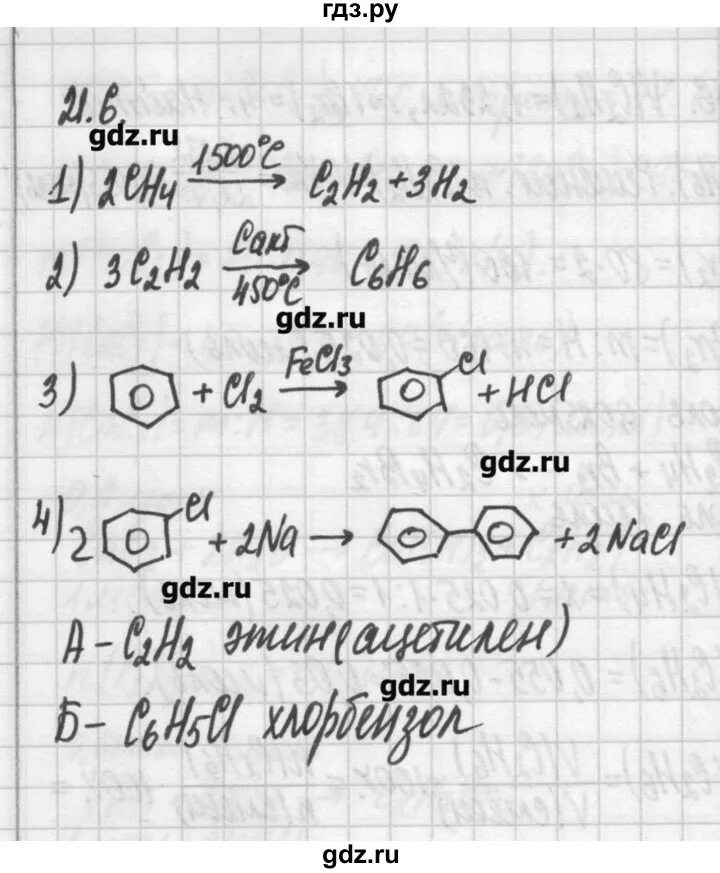 гдз.ру
21.6.
gdz.ru
1) 2CH4 1500°C → C2H2 + 3H2
2) 3C2H2 Cакт 450°C → C6H6
gdz.ru
3) + Cl2 FeCl3 → Cl + HCl
gdz.ru
4) 2 Cl + 2Na → + 2NaCl
gdz.ru
А – C2H2 этин (ацетилен)
gdz.ru
Б – C6H5Cl хлорбензол
gdz.ru